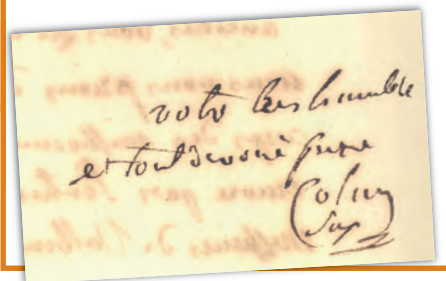 votre très humble
et tout dévoué frère
Colin
sup